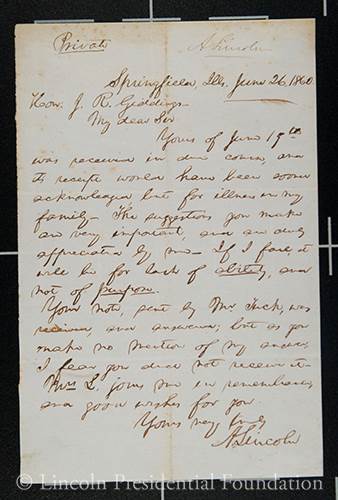 Private
A Lincoln
Springfield, Ills. June 26, 1860
Hon. J. R. Giddings
My dear Sir
Yours of June 19th
was received in due course, and
its receipt would have been sooner
acknowledged but for illness in my
family— The suggestions you make
are very important, and are duly
appreciated by me— If I fail, it
will be for lack of ability, and
not of purpose.
Your note, sent by Mr. Tuck, was
received, and answered; but as you
make no mention of my answer
I fear you did not receive it—
Mrs L. joins me in remembrances
and good wishes for you.
Yours very truly
A. Lincoln
© Lincoln Presidential Foundation